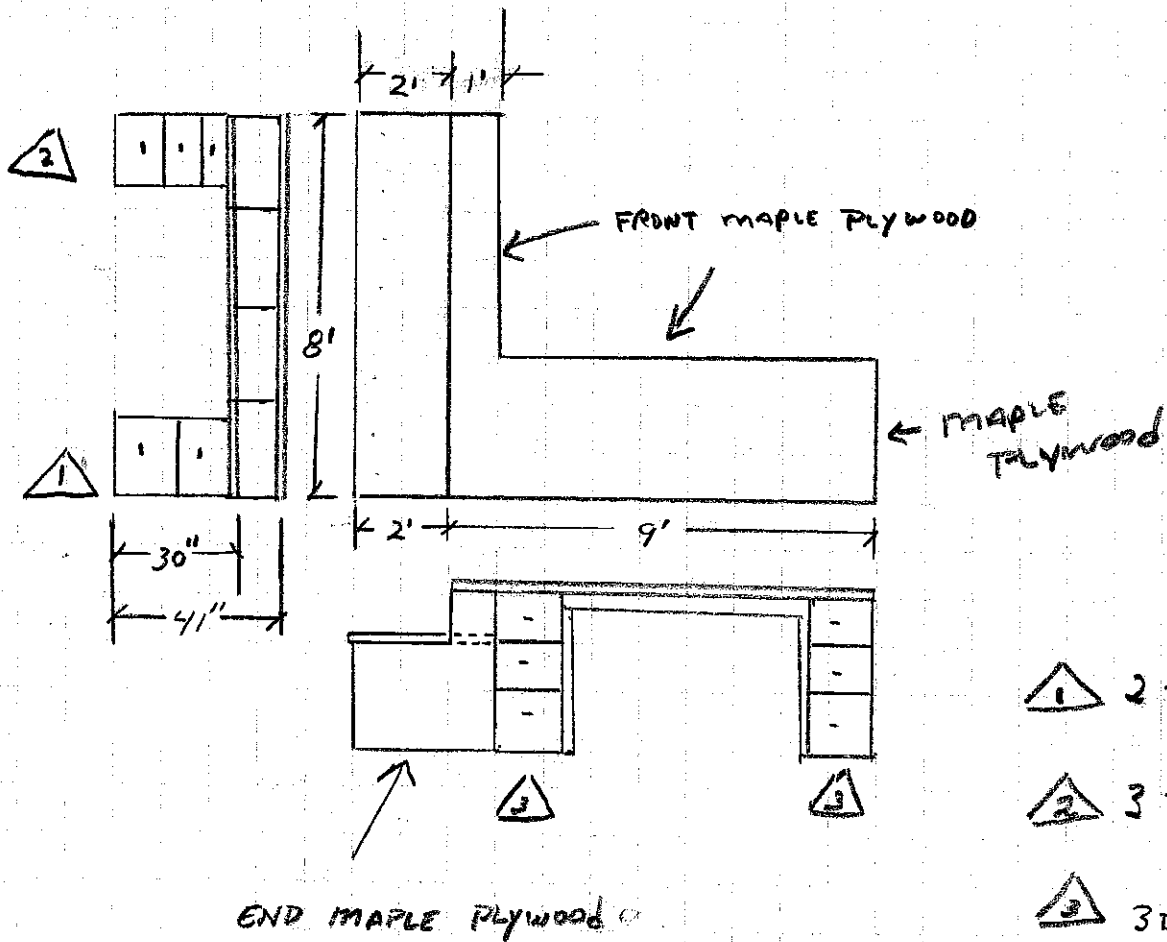 2' 1'
2
FRONT MAPLE PLYWOOD
8'
MAPLE
PLYWOOD
1
2' 9'
30"
41"
1 2
2 3
3 3
3 3
END MAPLE PLYWOOD